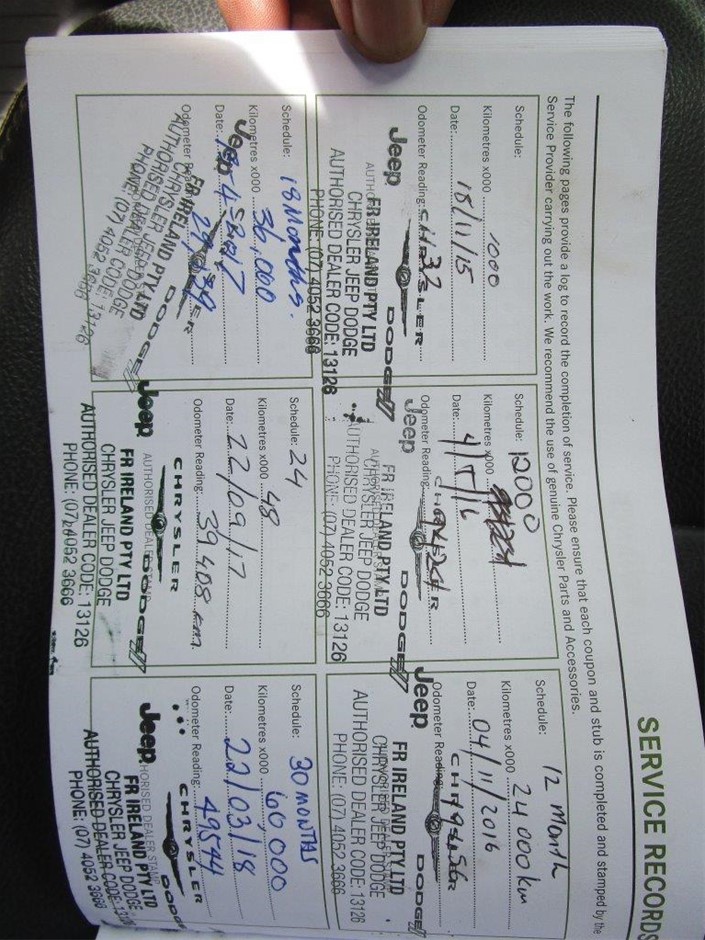 SERVICE RECORDS
The following pages provide a log to record the completion of service. Please ensure that each coupon and stub is completed and stamped by the
Service Provider carrying out the work. We recommend the use of genuine Chrysler Parts and Accessories.
Schedule:
Kilometres x000 1000
Date: 18/11/15
Odometer Reading:
Jeep CHRYSLER DODGE
FR IRELAND PTY LTD
CHRYSLER JEEP DODGE
AUTHORISED DEALER CODE: 13126
PHONE: (07) 4052 3666
Schedule: 12000
Kilometres x000
Date:
Odometer Reading:
Jeep DODGE
FR IRELAND PTY LTD
CHRYSLER JEEP DODGE
AUTHORISED DEALER CODE: 13126
PHONE: (07) 4052 3666
Schedule: 12 Month
Kilometres x000 24000km
Date: 04/11/2016
Odometer Reading:
Jeep DODGE
FR IRELAND PTY LTD
CHRYSLER JEEP DODGE
AUTHORISED DEALER CODE: 13126
PHONE: (07) 4052 3666
Schedule: 18 Months.
Kilometres x000 36,000
Date:
Odometer
Jeep DODGE
FR IRELAND PTY LTD
CHRYSLER JEEP DODGE
AUTHORISED DEALER CODE: 13126
PHONE: (07) 4052 3666
Schedule: 24
Kilometres x000 48
Date: 22/09/17
Odometer Reading: 39408 km.
Jeep CHRYSLER DODGE
FR IRELAND PTY LTD
CHRYSLER JEEP DODGE
AUTHORISED DEALER CODE: 13126
PHONE: (07) 4052 3666
Schedule: 30 MONTHS
Kilometres x000 60000
Date: 22/03/18
Odometer Reading: 49544
Jeep CHRYSLER DODGE
FR IRELAND PTY LTD
CHRYSLER JEEP DODGE
AUTHORISED DEALER CODE: 13126
PHONE: (07) 4052 3666